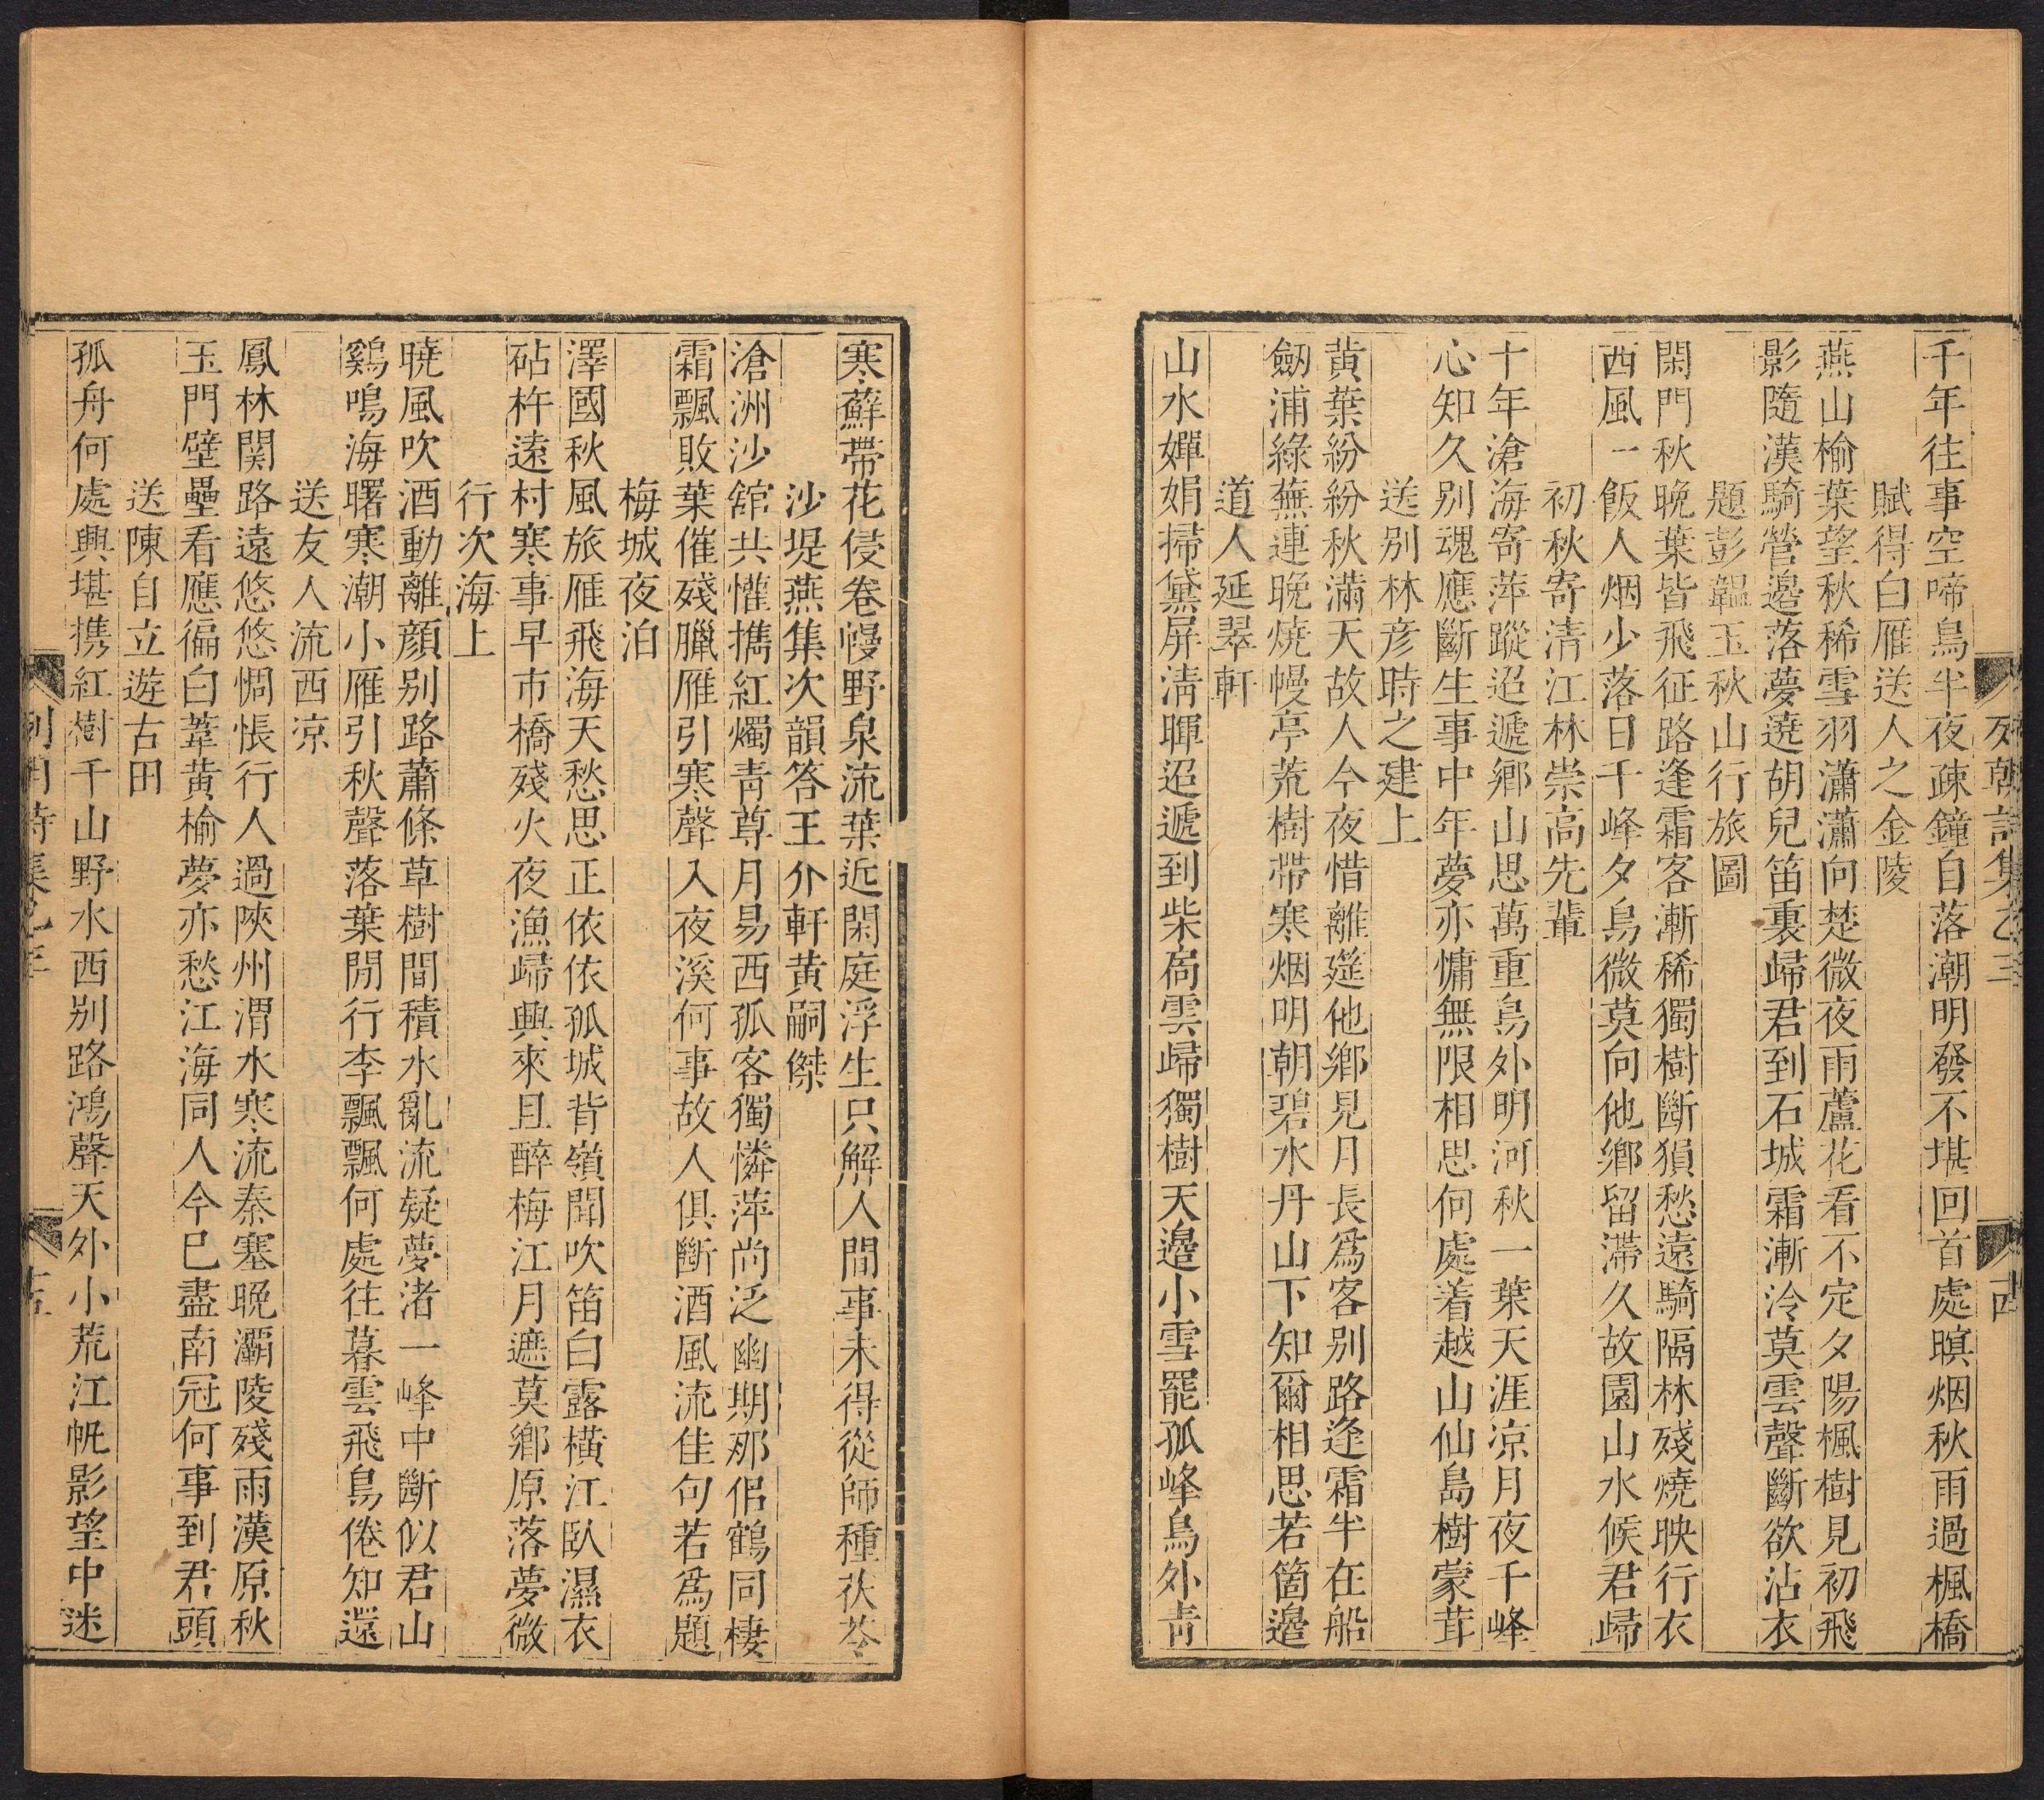 千年往事空啼鳥半夜疎鐘自落潮明發不堪回首處暝烟秋雨過楓橋
賦得白雁送人之金陵
燕山榆葉望秋稀雪羽瀟瀟向楚微夜雨蘆花看不定夕陽楓樹見初飛
影隨漢騎營邊落夢遶胡兒笛裏歸君到石城霜漸冷莫雲聲斷欲沾衣
題彭韞玉秋山行旅圖
閑門秋晚葉皆飛征路逢霜客漸稀獨樹斷猿愁遠騎隔林殘燒映行衣
西風一飯人烟少落日千峰夕鳥微莫向他鄉留滯久故園山水候君歸
初秋寄清江林崇高先輩
十年滄海寄萍蹤迢遞鄉山思萬重鳥外明河秋一葉天涯涼月夜千峰
心知久别魂應斷生事中年夢亦慵無限相思何處着越山仙島樹蒙茸
送别林彦時之建上
黄葉紛紛秋滿天故人今夜惜離筵他鄉見月長爲客别路逢霜半在船
劒浦綠蕪連晚燒幔亭荒樹帶寒烟明朝碧水丹山下知爾相思若箇邊
道人延翠軒
山水嬋娟掃黛屏淸暉迢遞到柴扃雲歸獨樹天邊小雪罷孤峰鳥外靑
列朝詩集乙三
寒蘚帶花侵卷幔野泉流葉近閑庭浮生只解人間事未得從師種茯苓
沙堤燕集次韻答王介軒黄嗣傑
滄洲沙舘共懽擕紅燭青尊月易西孤客獨憐萍尚泛幽期那侣鶴同棲
霜飄敗葉催殘臘雁引寒聲入夜溪何事故人俱斷酒風流佳句若爲題
梅城夜泊
澤國秋風旅雁飛海天愁思正依依孤城背嶺聞吹笛白露橫江臥濕衣
砧杵遠村寒事早市橋殘火夜漁歸興來且醉梅江月遮莫鄉原落夢微
行次海上
曉風吹酒動離顔别路蕭條草樹間積水亂流疑夢渚一峰中斷似君山
鷄鳴海曙寒潮小雁引秋聲落葉閒行李飄飄何處往暮雲飛鳥倦知還
送友人流西凉
鳳林関路遠悠悠惆悵行人過陝州渭水寒流秦塞晚灞陵殘雨漢原秋
玉門壁壘看應徧白葦黄榆夢亦愁江海同人今已盡南冠何事到君頭
送陳自立遊古田
孤舟何處興堪携紅樹千山野水西别路鴻聲天外小荒江帆影望中迷